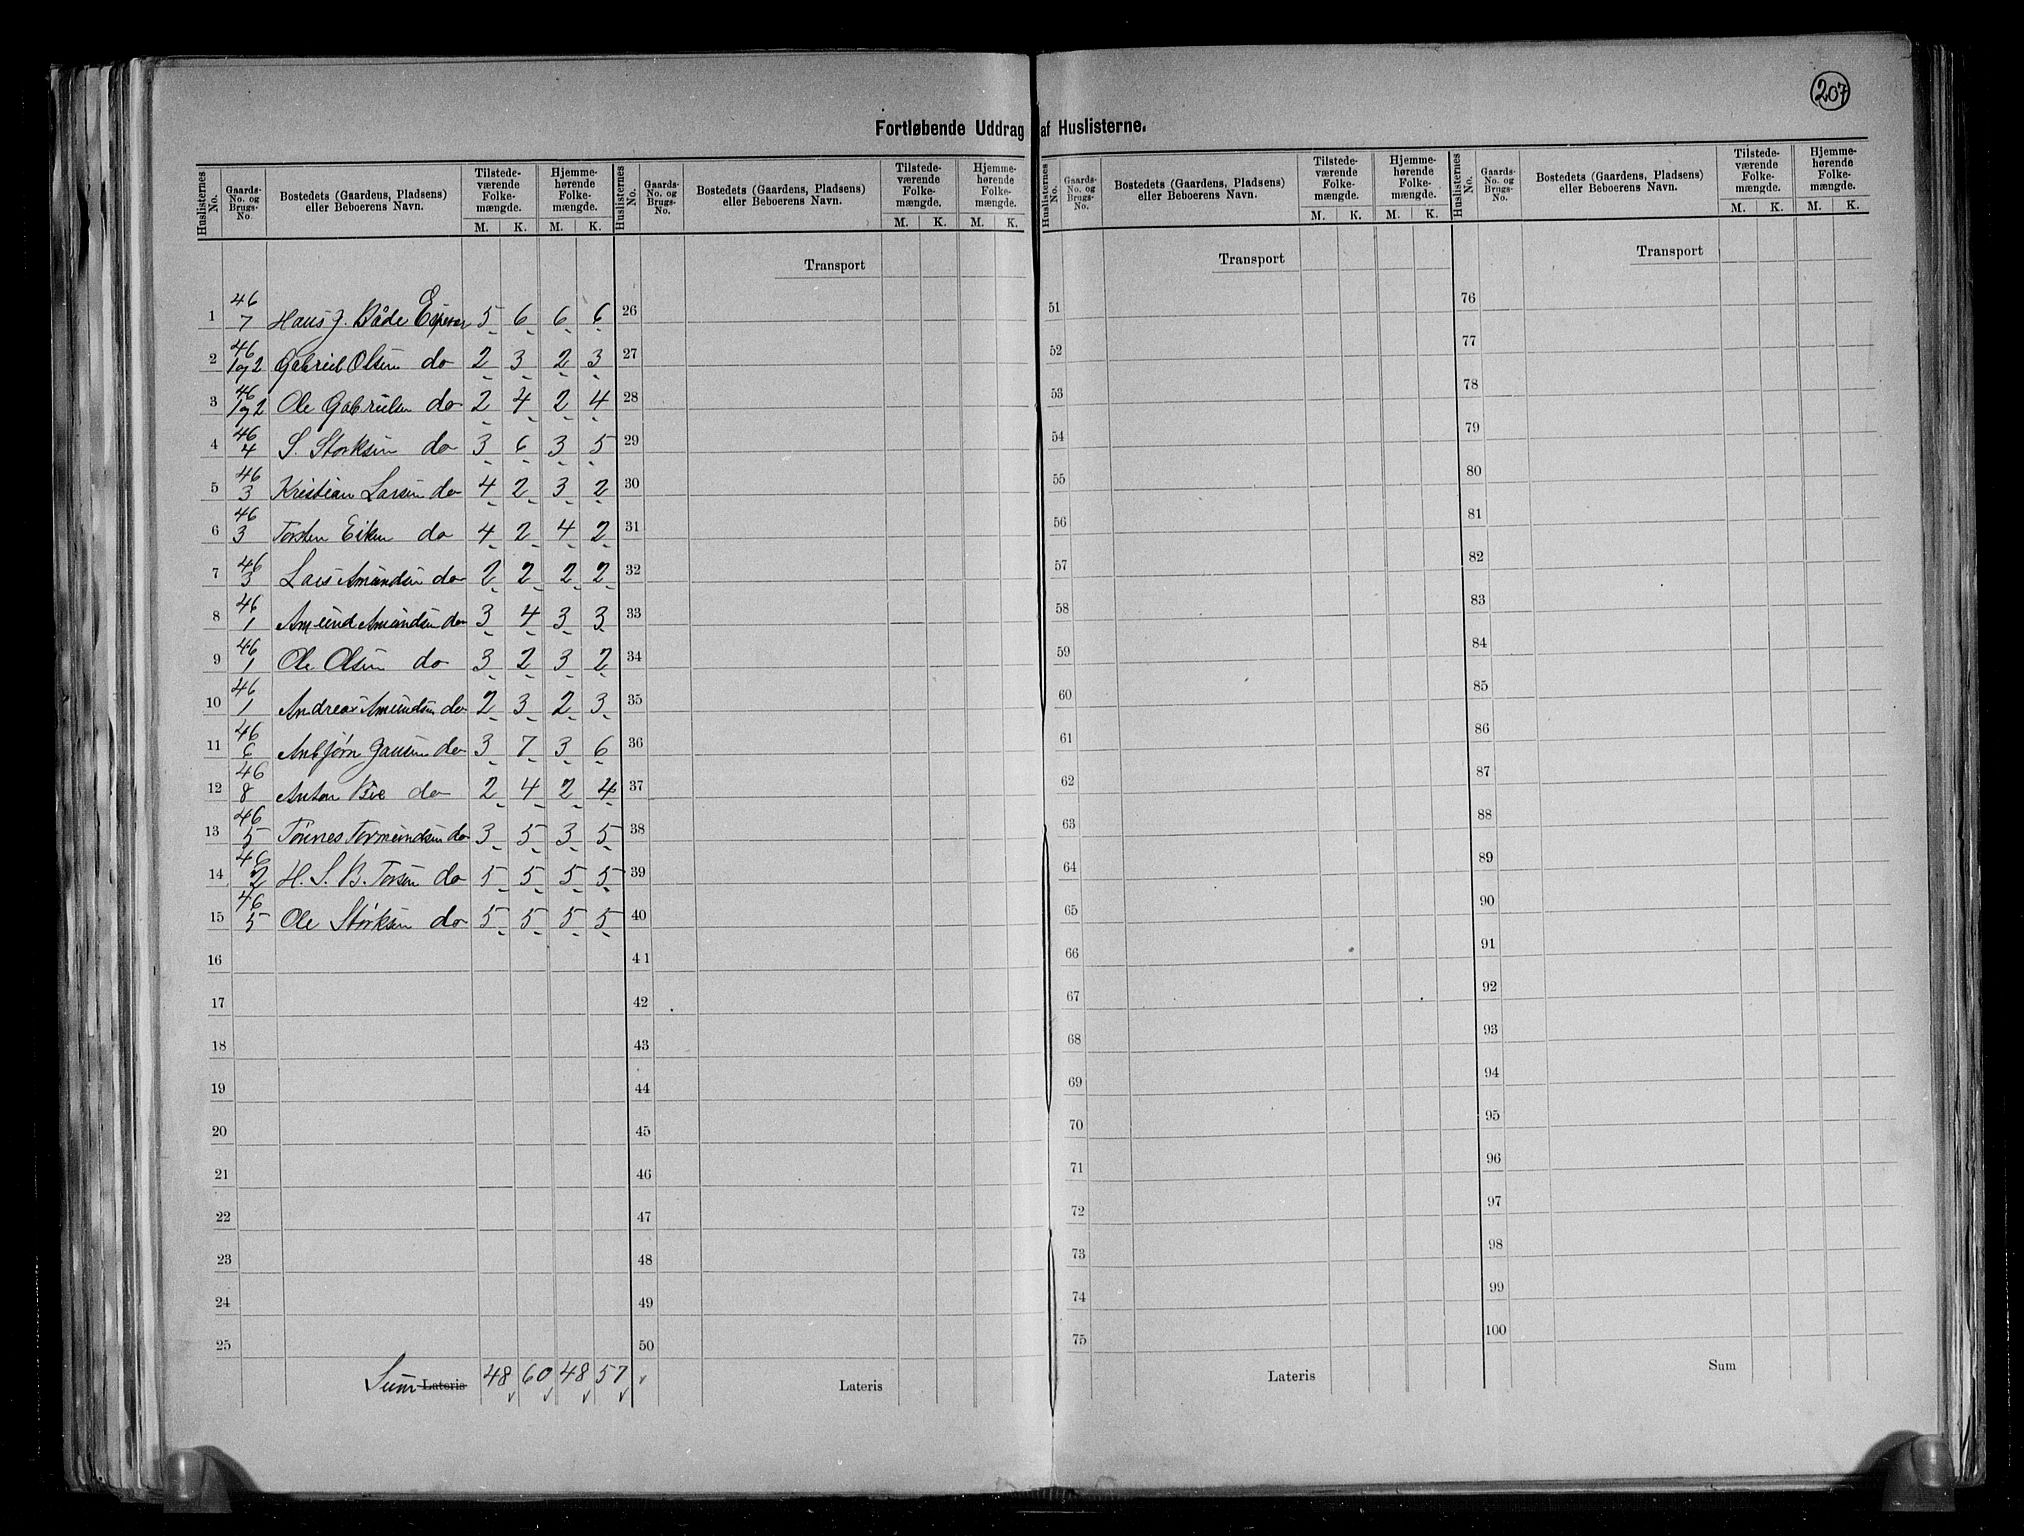 207
Fortløbende Uddrag af Huslisterne.
Huslisternes No. Gaards-No. og Brugs-No. Bostedets (Gaardens, Pladsens) eller Beboerens Navn. Tilstedeværende Folkemængde. M. K. Hjemmehørende Folkemængde. M. K.
Huslisternes No. Gaards-No. og Brugs-No. Bostedets (Gaardens, Pladsens) eller Beboerens Navn. Tilstedeværende Folkemængde. M. K. Hjemmehørende Folkemængde. M. K.
Huslisternes No. Gaards-No. og Brugs-No. Bostedets (Gaardens, Pladsens) eller Beboerens Navn. Tilstedeværende Folkemængde. M. K. Hjemmehørende Folkemængde. M. K.
Huslisternes No. Gaards-No. og Brugs-No. Bostedets (Gaardens, Pladsens) eller Beboerens Navn. Tilstedeværende Folkemængde. M. K. Hjemmehørende Folkemængde. M. K.
Transport Transport Transport
1 46/7 Hans J. Både Espevær 5 6 6 6 26 51 76
2 46/1og2 Gabriel Olsen do 2 3 2 3 27 52 77
3 46/1og2 Ole Gabrielsen do 2 4 2 4 28 53 78
4 46/4 S. Storksen do 3 6 3 5 29 54 79
5 46/3 Kristian Larsen do 4 2 3 2 30 55 80
6 46/3 Torsten Eiken do 4 2 4 2 31 56 81
7 46/3 Lars Amundsen do 2 2 2 2 32 57 82
8 46/1 Amund Amundsen do 3 4 3 3 33 58 83
9 46/1 Ole Olsen do 3 2 3 2 34 59 84
10 46/1 Andreas Amundsen do 2 3 2 3 35 60 85
11 46/6 Anbjørn Jansen do 3 7 3 6 36 61 86
12 46/8 Anton Bie do 2 4 2 4 37 62 87
13 46/5 Tønnes Tormundsen do 3 5 3 5 38 63 88
14 46/2 H. S. B. Torsen do 5 5 5 5 39 64 89
15 46/5 Ole Størksen do 5 5 5 5 40 65 90
16 41 66 91
17 42 67 92
18 43 68 93
19 44 69 94
20 45 70 95
21 46 71 96
22 47 72 97
23 48 73 98
24 49 74 99
25 50 75 100
Sum Lateris 48 60 48 57 Lateris Lateris Sum